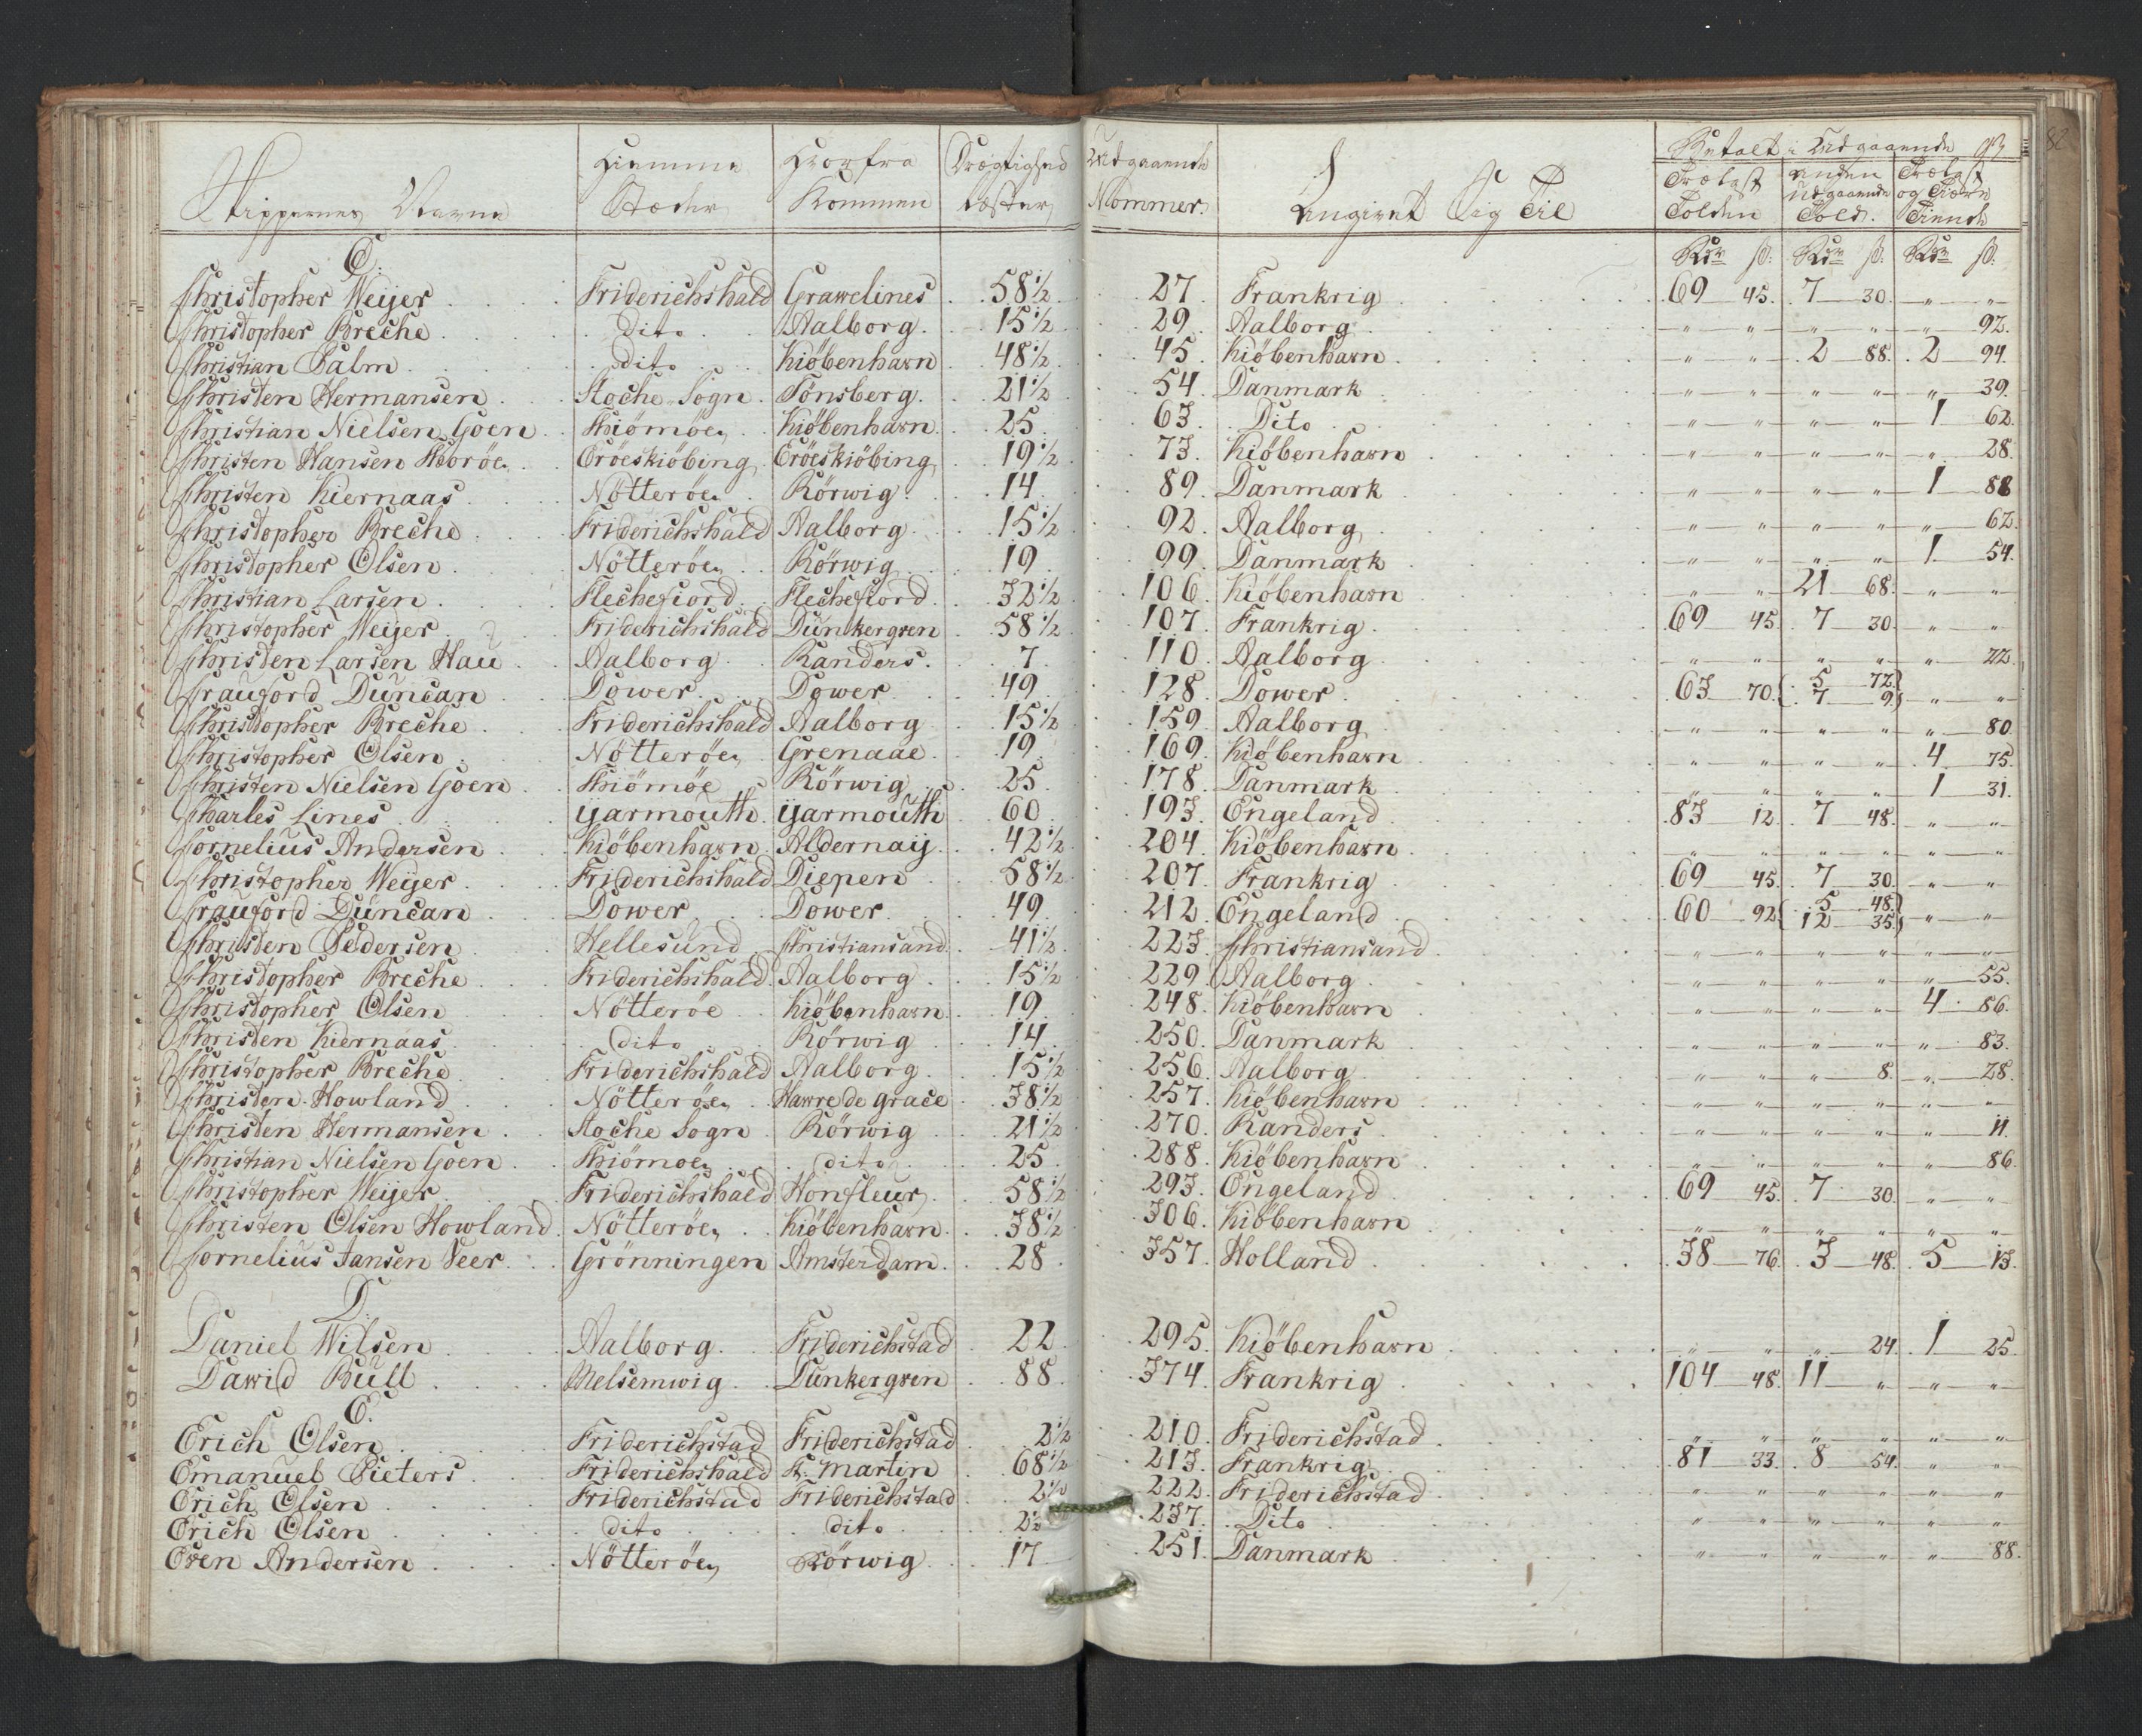 Skippernes Navne | Hiemme Stæder | Hvorfra Kommen | Drægtighed Læster | Udgaaende Nommer. | Angivet Sig Til | Betalt i Udgaaende
Trælast Tolden | anden Udgaaende Told. | Trælast og Tiære Tiende
Rdr ß: | Rdr ß. | Rdr ß.
C.
Christopher Weijer | Friderichshald | Grawelines | 58 1/2 | 27. | Frankrig | 69 45. | 7 30. | " "
Christopher Breche | dito | Aalborg | 15 1/2 | 29. | Aalborg | " " | " " | " 92.
Christian Palm | dito | Kiøbenhavn | 48 1/2 | 45. | Kiøbenhavn | " " | 2 88. | 2 94.
Christen Hermansen | Stoche Sogn | Tönsberg | 21 1/2 | 54. | Danmark | " " | " " | " 39.
Christian Nielsen Goen | Thiömöe | Kiøbenhavn | 25 | 63. | Dito | " " | " " | 1 62.
Christen Hansen | Eröeskiöbing | Eröeskiöbing | 19 1/2 | 73. | Kiøbenhavn | " " | " " | " 28.
Christen Kiernaas | Nötteröe | Rörwig | 14 | 89. | Danmark | " " | " " | 1 88
Christopher Breche | Friderichshald | Aalborg | 15 1/2 | 92. | Aalborg | " " | " " | " 62.
Christopher Olsen | Nötteröe | Rörwig | 19 | 99. | Danmark | " " | " " | 1 54.
Christian Larsen | Flechefiord | Flechefiord | 32 1/2 | 106. | Kiøbenhavn | " " | 21 68. | " "
Christopher Weijer | Friderichshald | Dünkergven | 58 1/2 | 107. | Frankrig | 69 45. | 7 30. | " "
Christen Larsen Hau | Aalborg | Randers | 7 | 110. | Aalborg | " " | " " | " 22.
Crauford Duncan | Dower | Dower | 49 | 128. | Dower | 63 70. | 5 72. 7 9. | " "
Christopher Breche | Friderichshald | Aalborg | 15 1/2 | 159. | Aalborg | " " | " " | " 80.
Christopher Olsen | Nötteröe | Grenaae | 19 | 169. | Kiøbenhavn | " " | " " | 4 75.
Christen Nielsen Goen | Thiömöe | Rörwig | 25 | 178. | Danmark | " " | " " | 1 31.
Charles Lines | Yarmouth | Yarmouth | 60 | 193. | Engeland | 83 12. | 7 48. | " "
Cornelius Andersen | Kiøbenhavn | Aldernaij | 42 1/2 | 204. | Kiøbenhavn | " " | " " | " "
Christopher Weijer | Friderichshald | Diepen | 58 1/2 | 207. | Frankrig | 69 45. | 7 30. | " "
Crauford Duncan | Dower | Dower | 49 | 212. | Engeland | 60 92. | 5 48. 12 35. | " "
Christen Pedersen | Hellesund | Christiansand | 41 1/2 | 223. | Christiansand | " " | " " | " "
Christopher Breche | Friderichshald | Aalborg | 15 1/2 | 229. | Aalborg | " " | " " | " 55.
Christopher Olsen | Nötteröe | Kiøbenhavn | 19 | 248. | Kiøbenhavn | " " | " " | 4 86.
Christen Kiernaas | dito | Rörwig | 14 | 250. | Danmark | " " | " " | " 83.
Christopher Breche | Friderichshald | Aalborg | 15 1/2 | 256. | Aalborg | " " | " 8. | " 28.
Christen Howland | Nötteröe | Hawre de grace | 38 1/2 | 257. | Kiøbenhavn | " " | " " | " "
Christen Hermansen | Stoche Sogn | Rörwig | 21 1/2 | 270. | Randers | " " | " " | " 11.
Christian Nielsen Goen | Thiömoe | dito | 25 | 288. | Kiøbenhavn | " " | " " | " 86.
Christopher Weijer | Friderichshald | Honfleur | 58 1/2 | 293. | Engeland | 69 45. | 7 30. | " "
Christen Olsen Howland | Nötteröe | Kiøbenhavn | 38 1/2 | 306. | Kiøbenhavn | " " | " " | " "
Cornelius Jansen Veer | Grönningen | Amsterdam | 28 | 357. | Holland | 38 76. | 3 48. | 5 13.
D.
Daniel Wilsen | Aalborg | Friderichstad | 22 | 295. | Kiøbenhavn | " " | " 24. | 1 25.
Dawid Bull | Melsemwig | Dunkergven | 88 | 374. | Frankrig | 104 48. | 11 " | " "
E.
Erich Olsen | Friderichstad | Friderichstad | 2 1/2 | 210. | Friderichstad | " " | " " | " "
Emanuel Pieters | Friderichshald | St. Martin | 68 1/2 | 213. | Frankrig | 81 33. | 8 54. | " "
Erich Olsen | Friderichstad | Friderichstad | 2 1/2 | 222. | Friderichstad | " " | " " | " "
Erich Olsen | dito | dito | 2 1/2 | 237. | Dito | " " | " " | " "
Even Andersen | Nötteröe | Rörwig | 17 | 251. | Danmark | " " | " " | " 88.